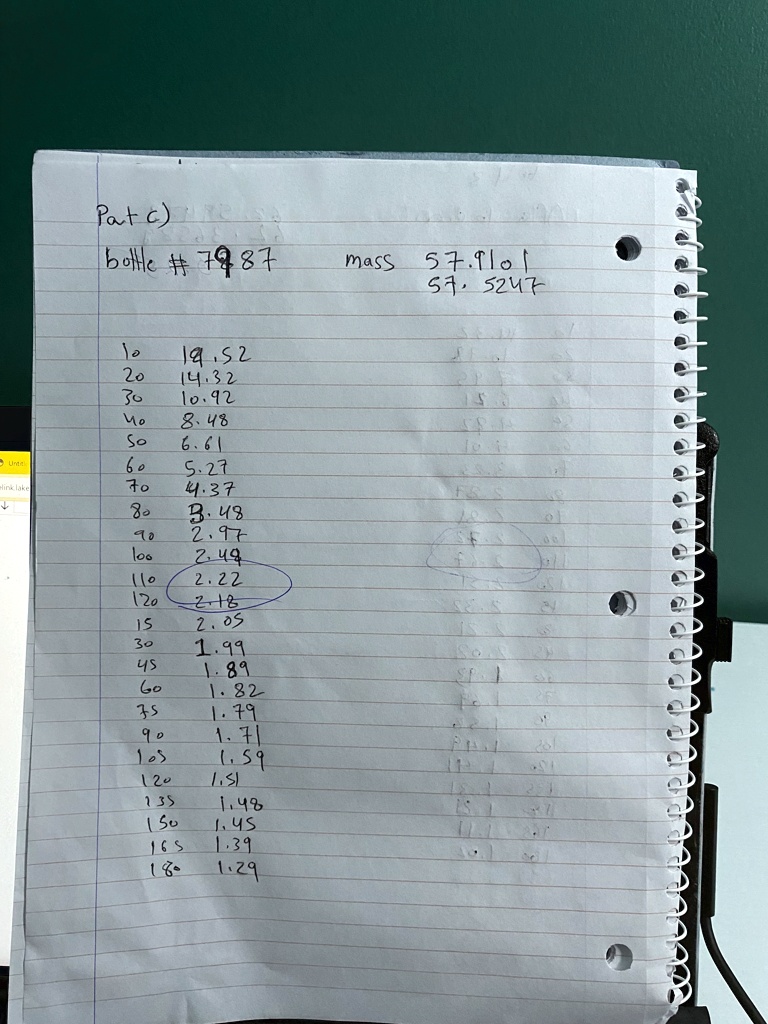 Part c)
bottle # 7987 mass 57.9101
57.5247
10 19.52
20 14.32
30 10.92
40 8.48
50 6.61
60 5.27
70 4.37
80 3.48
90 2.97
100 2.49
110 2.22
120 2.18
15 2.05
30 1.99
45 1.89
60 1.82
75 1.79
90 1.71
105 1.59
120 1.51
135 1.48
150 1.45
165 1.39
180 1.29